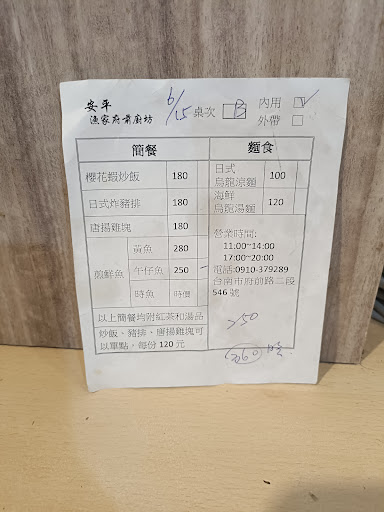 安平
漁家府前廚坊
6/15 桌次 B
內用 ✓
外帶
簡餐
櫻花蝦炒飯 180
日式炸豬排 180
唐揚雞塊 180
煎鮮魚
黃魚 280
午仔魚 250
時魚 時價
以上簡餐均附紅茶和湯品
炒飯、豬排、唐揚雞塊可
以單點，每份 120 元
麵食
日式
烏龍涼麵 100
海鮮
烏龍湯麵 120
營業時間:
11:00~14:00
17:00~20:00
電話:0910-379289
台南市府前路二段
546 號
250